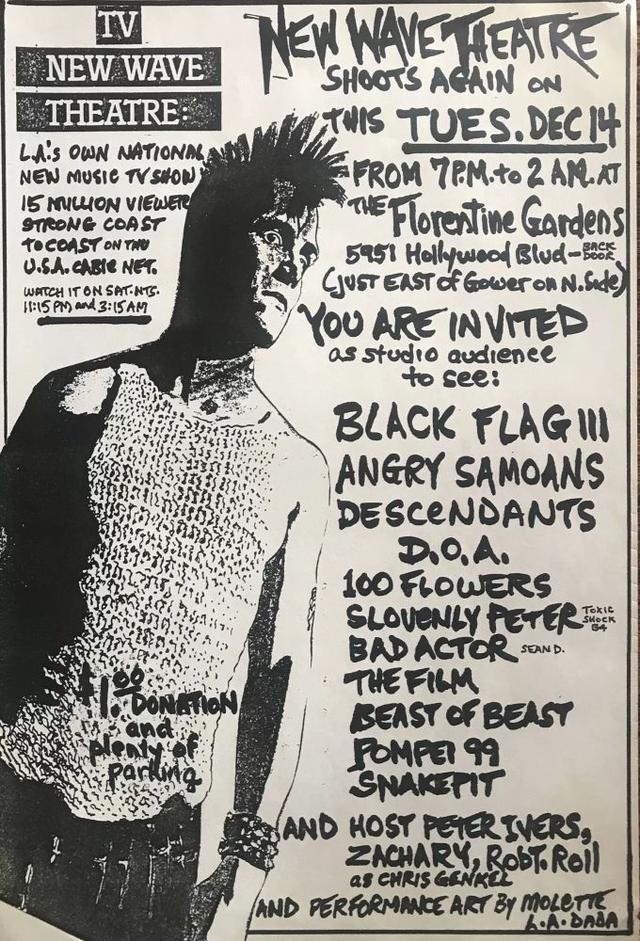 TV
NEW WAVE
THEATRE:
L.A.'s OWN NATIONAL
NEW MUSIC TV SHOW
15 MILLION VIEWER
STRONG COAST
TO COAST ON THE
U.S.A. CABLE NET.
WATCH IT ON SAT. NTS.
11:15 PM and 3:15 AM
NEW WAVE THEATRE
SHOOTS AGAIN ON
THIS TUES. DEC 14
FROM 7 P.M. to 2 AM. AT
THE Florentine Gardens
5951 Hollywood Blvd - BACK DOOR
(JUST EAST of Gower on N. Side)
YOU ARE INVITED
as studio audience
to see:
BLACK FLAG III
ANGRY SAMOANS
DESCENDANTS
D.O.A.
100 FLOWERS
SLOVENLY PETER TOXIC SHOCK
BAD ACTOR SEAN D.
THE FILM
BEAST OF BEAST
POMPEI 99
SNAKEPIT
$1.00 DONATION
and
plenty of
parking
AND HOST PETER IVERS,
ZACHARY, ROBT. Roll
as CHRIS GENKEL
AND PERFORMANCE ART BY MOLETTE
L.A. DADA